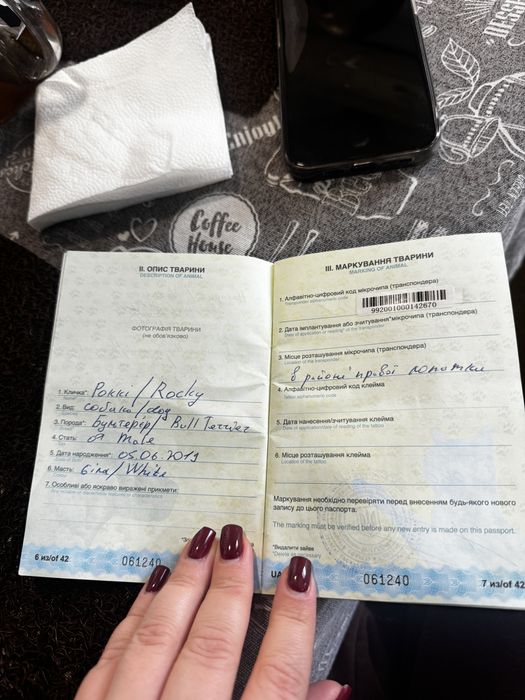 Enjoy
Coffee
House
II. ОПИС ТВАРИНИ
DESCRIPTION OF ANIMAL
ФОТОГРАФІЯ ТВАРИНИ
(не обов'язково)
1. Кличка* Роккі / Rocky
2. Вид: собака / dog
3. Порода*: Бультер'єр / Bull Terrier
4. Стать: Male
5. Дата народження*: 05.06.2019
6. Масть: Біла / White
7. Особливі або яскраво виражені прикмети:
6 из/of 42
061240
III. МАРКУВАННЯ ТВАРИНИ
MARKING OF ANIMAL
1. Алфавітно-цифровий код мікрочипа (транспондера)
Transponder alphanumeric code
992001000142670
2. Дата імплантування або зчитування*мікрочипа (транспондера)
Date of application or reading* of the transponder
3. Місце розташування мікрочипа (транспондера)
Location of the transponder
в районі правої лопатки
4. Алфавітно-цифровий код клейма
Tattoo alphanumeric code
5. Дата нанесення/зчитування клейма
Date of application/date of reading of the tattoo
6. Місце розташування клейма
Location of the tattoo
Маркування необхідно перевіряти перед внесенням будь-якого нового
запису до цього паспорта.
The marking must be verified before any new entry is made on this passport.
*Видалити зайве
*Delete as necessary
UA
061240
7 из/of 42